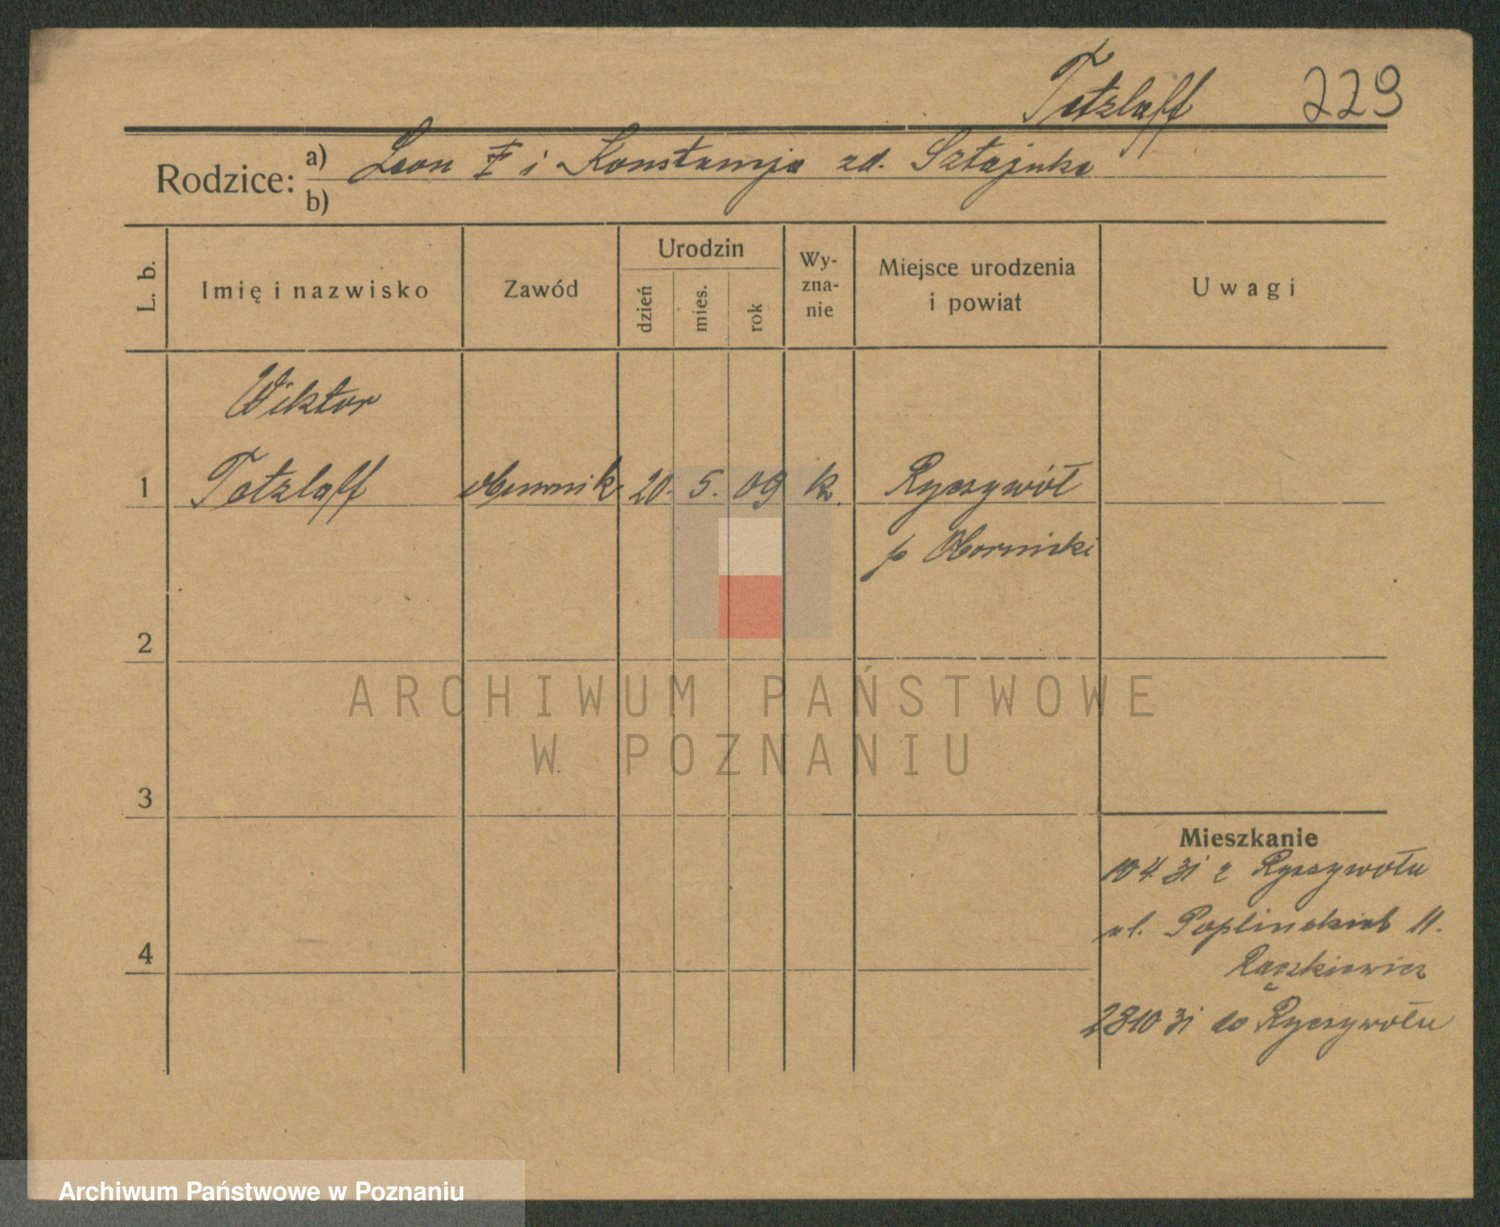 Tetzlaff 229
Rodzice: a) Leon T i Konstancja zd. Sztajnke
b)
L. b. Imię i nazwisko Zawód Urodzin dzień mies. rok Wy-zna-nie Miejsce urodzenia i powiat Uwagi
Wiktor
1 Tetzlaff 20. 5. 09 k. Ryczywół
p Obornicki
2
3
4
ARCHIWUM PAŃSTWOWE
W POZNANIU
Mieszkanie
10 4 31 z Ryczywołu
ul. Poplińskich 11.
Raczkiewicz
28 10 31 do Ryczywołu
Archiwum Państwowe w Poznaniu